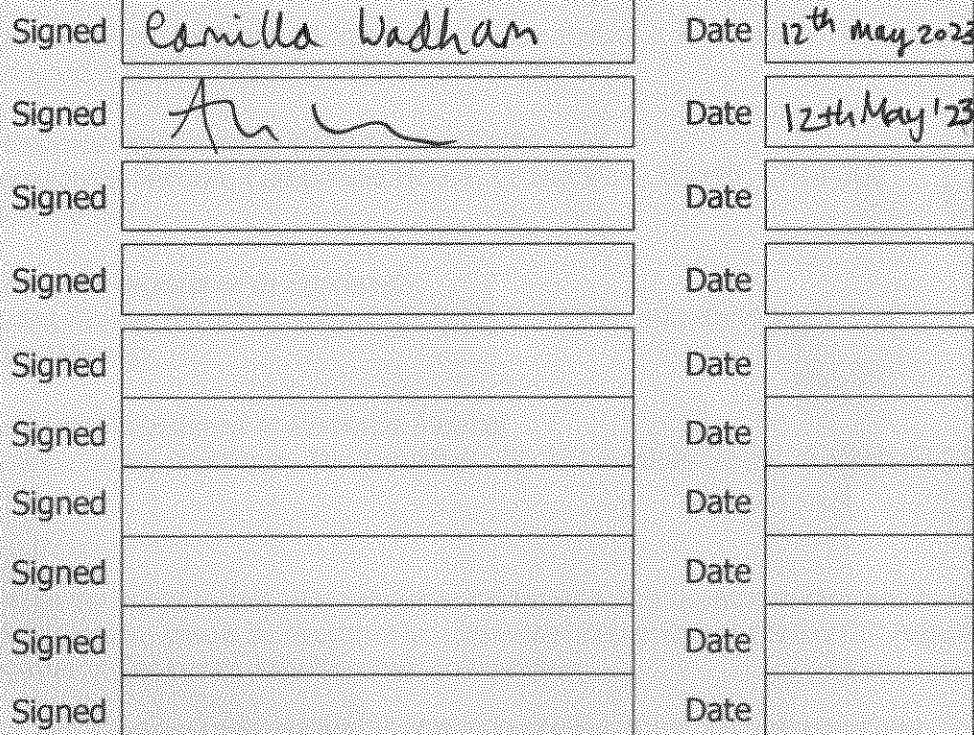 Signed Camilla Wadham Date 12th May 2023
Signed Date 12th May '23
Signed Date
Signed Date
Signed Date
Signed Date
Signed Date
Signed Date
Signed Date
Signed Date